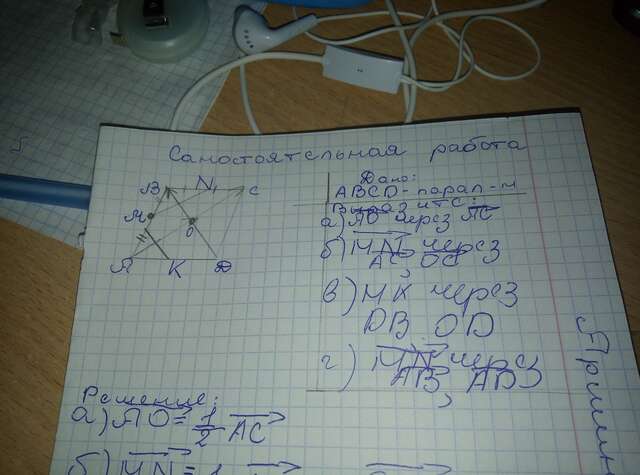 Самостоятельная работа
B N C
M O
A K D
Дано:
ABCD - парал-м
Выразить:
а) AO через AC
б) MN через
AC, OC
в) MK через
DB OD
г) MN через
AB, AD
Решение:
а) AO = 1/2 AC
б) MN = 1